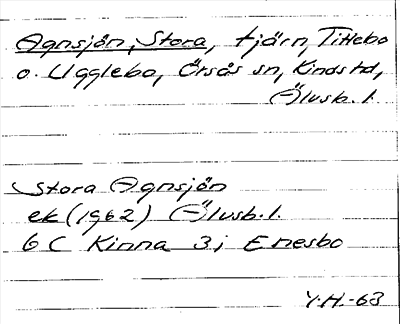 Agnsjön, Stora, tjärn, Tittebo
o. Ugglebo, Örsås sn, Kinds hd,
Älvsb. l.
Stora Agnsjön
ek (1962) Älvsb. l.
6 C Kinna 3 i Enesbo
Y.H.-63